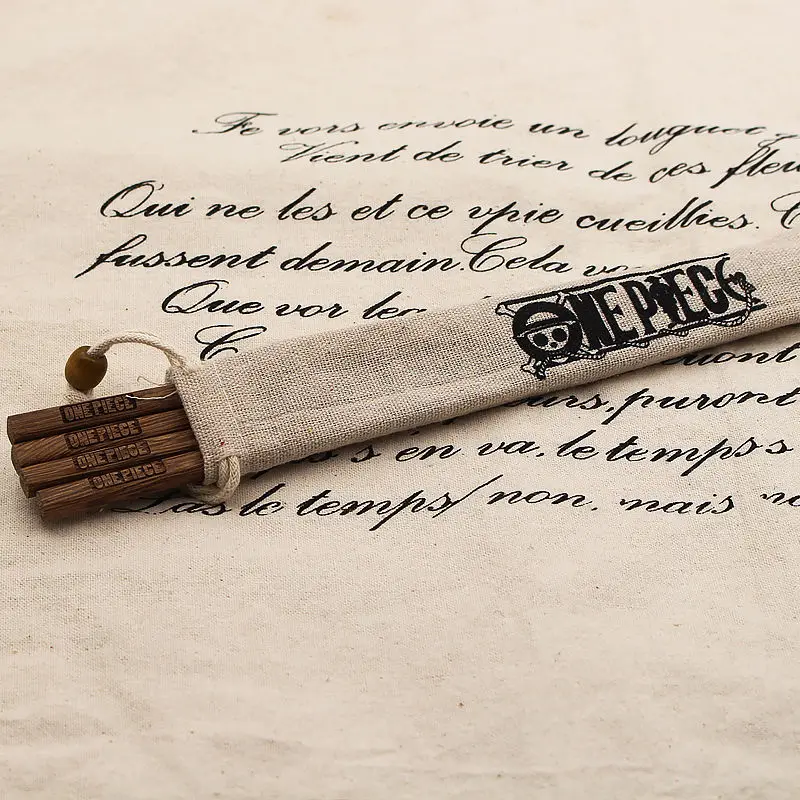 Fe vors envoie un
Vient de trier de ces fleu
Qui ne les et ce vpie cueillies. C
fussent demain. Cela vo
Que vor les
C
ONE PIECE
uont
urs, puront
s én va, le temps s
as le temps/ non, mais no
ONE PIECE
ONE PIECE
ONE PIECE
ONE PIECE